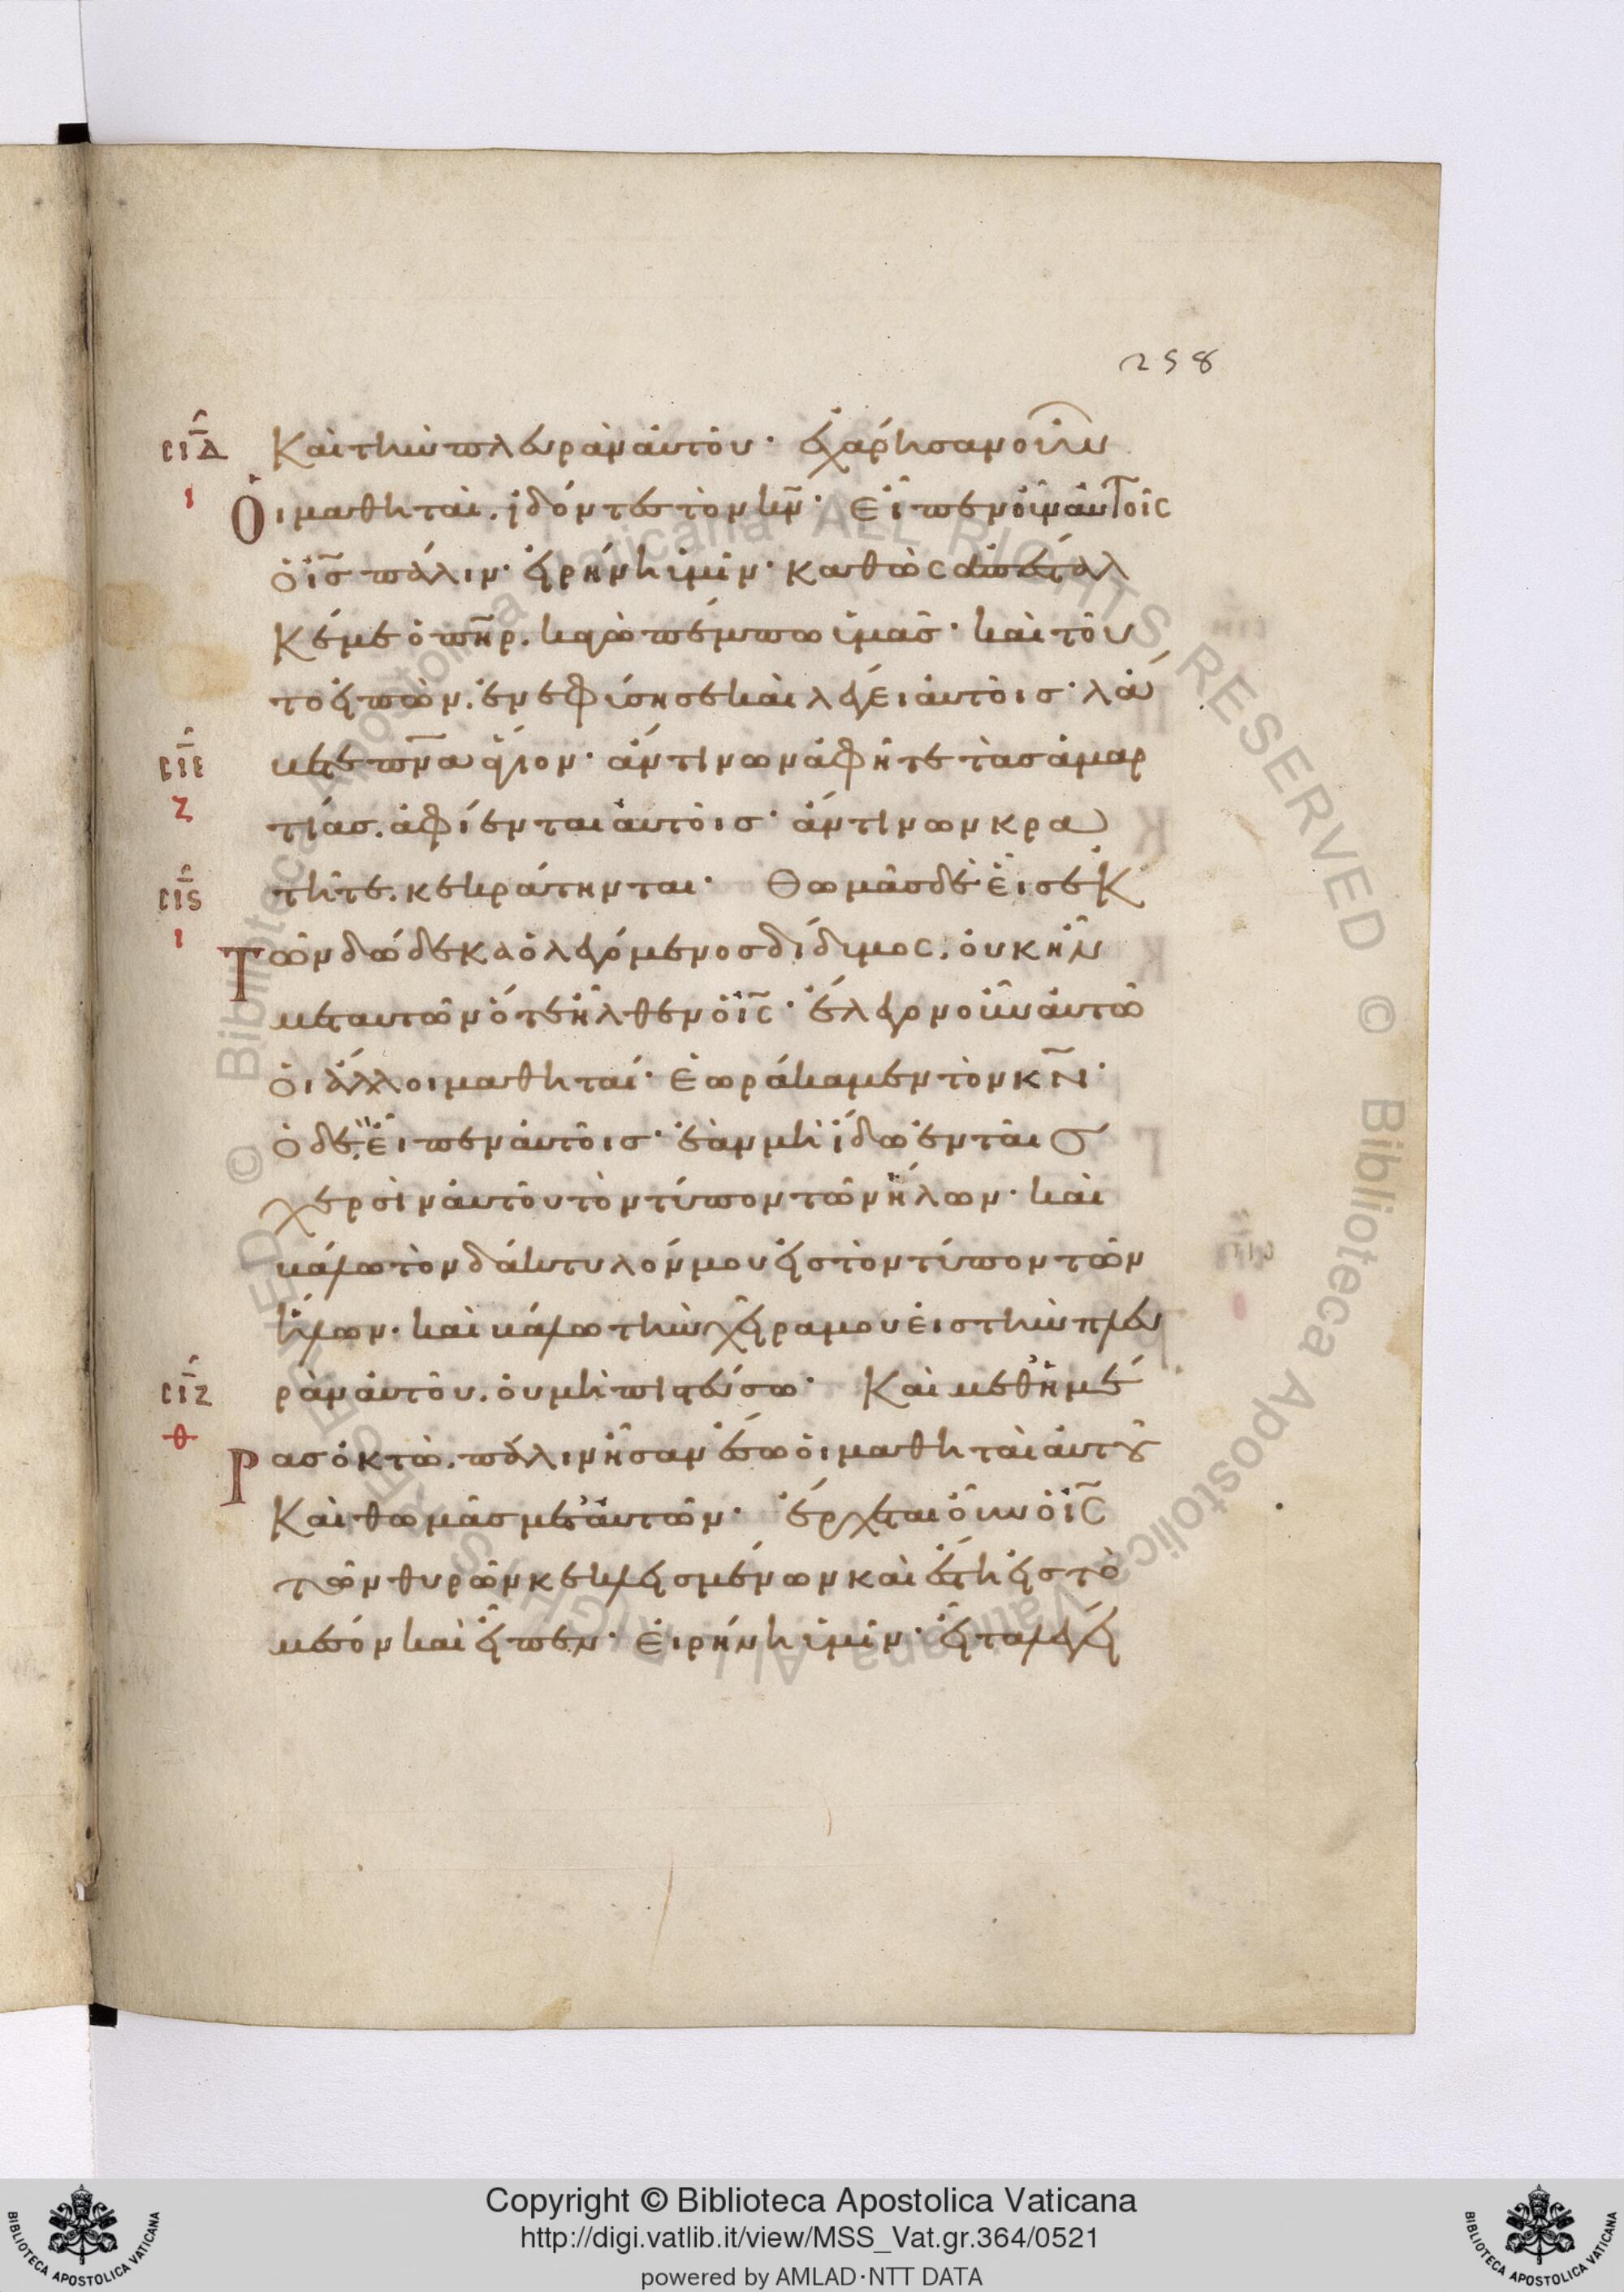 258
σιδ
ι
Καὶ τὴν πλευρὰν ἀυτοῦ· ἐχάρησαν οὖν
Οἱ μαθηταὶ. ἰδόντες τὸν κν̅· Εἶπεν οὖν ἀυτοῖς
ὁ ισ̅ πάλιν· εἰρήνη ὑμῖν· καθὼς ἀπέσταλ
κέ με ὁ πη̅ρ. κἀγὼ πέμπω ὑμᾶς· καὶ τοῦ
το εἰπὼν. ἐνεφύσησε καὶ λέγει ἀυτοῖς· λά
σιε
ζ
βετε πν̅α ἅγιον· ἄν τινων ἀφῆτε τὰς ἁμαρ
τίας. ἀφίενται ἀυτοῖς· ἄν τινων κρα
σις
ι
τῆτε. κεκράτηνται· Θωμᾶς δὲ εἷς ἐκ
Τῶν δώδεκα ὁ λεγόμενος δίδιμος. οὐκ ἦν
μετ αυτῶν ὅτε ἦλθεν ὁ ισ̅· ἔλεγον οὖν ἀυτῶ
ὁι ἄλλοι μαθηταί· Ἑωράκαμεν τὸν κν̅·
ὁ δὲ εἶπεν ἀυτοῖς· ἐὰν μὴ ἴδω ἐν ταῖς
χερσὶν ἀυτοῦ τὸν τύπον τῶν ἥλων· καὶ
βάλω τὸν δάκτυλόν μου εἰς τὸν τύπον τῶν
ἥλων· καὶ βάλω τὴν χεῖρα μου εἰς τὴν πλευ
σιζ
θ
ρὰν ἀυτοῦ. οὐ μὴ πιστεύσω· Καὶ μεθ ἡμέ
Ρας ὀκτὼ. πάλιν ἦσαν ἔσω ὁι μαθηταὶ ἀυτοῦ
Καὶ θωμᾶς μετ ἀυτῶν· ἔρχεται οὖν ὁ ισ̅
τῶν θυρῶν κεκλεισμένων καὶ ἔστη εἰς τὸ
μέσον καὶ εἶπεν· Εἰρήνη ὑμῖν· εἶτα λέγει
© Biblioteca Apostolica Vaticana ALL RIGHTS RESERVED © Biblioteca Apostolica Vaticana ALL RIGHTS RESERVED
BIBLIOTECA APOSTOLICA VATICANA
Copyright © Biblioteca Apostolica Vaticana
http://digi.vatlib.it/view/MSS_Vat.gr.364/0521
powered by AMLAD·NTT DATA
BIBLIOTECA APOSTOLICA VATICANA